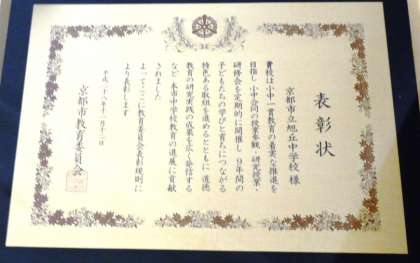 表彰状
京都市立旭丘中学校 様
貴校は小中一貫教育の着実な推進を
目指し小中合同の授業参観・研究授業・
研修会を定期的に開催し9年間の
子どもたちの学びと育ちにつながる
特色ある取組を進めるとともに道徳
教育の研究実践の成果を広く発信する
など本市中学校教育の進展に貢献
されました
よってここに教育委員会表彰規則に
より表彰します
平成二十八年十一月十二日
京都市教育委員会